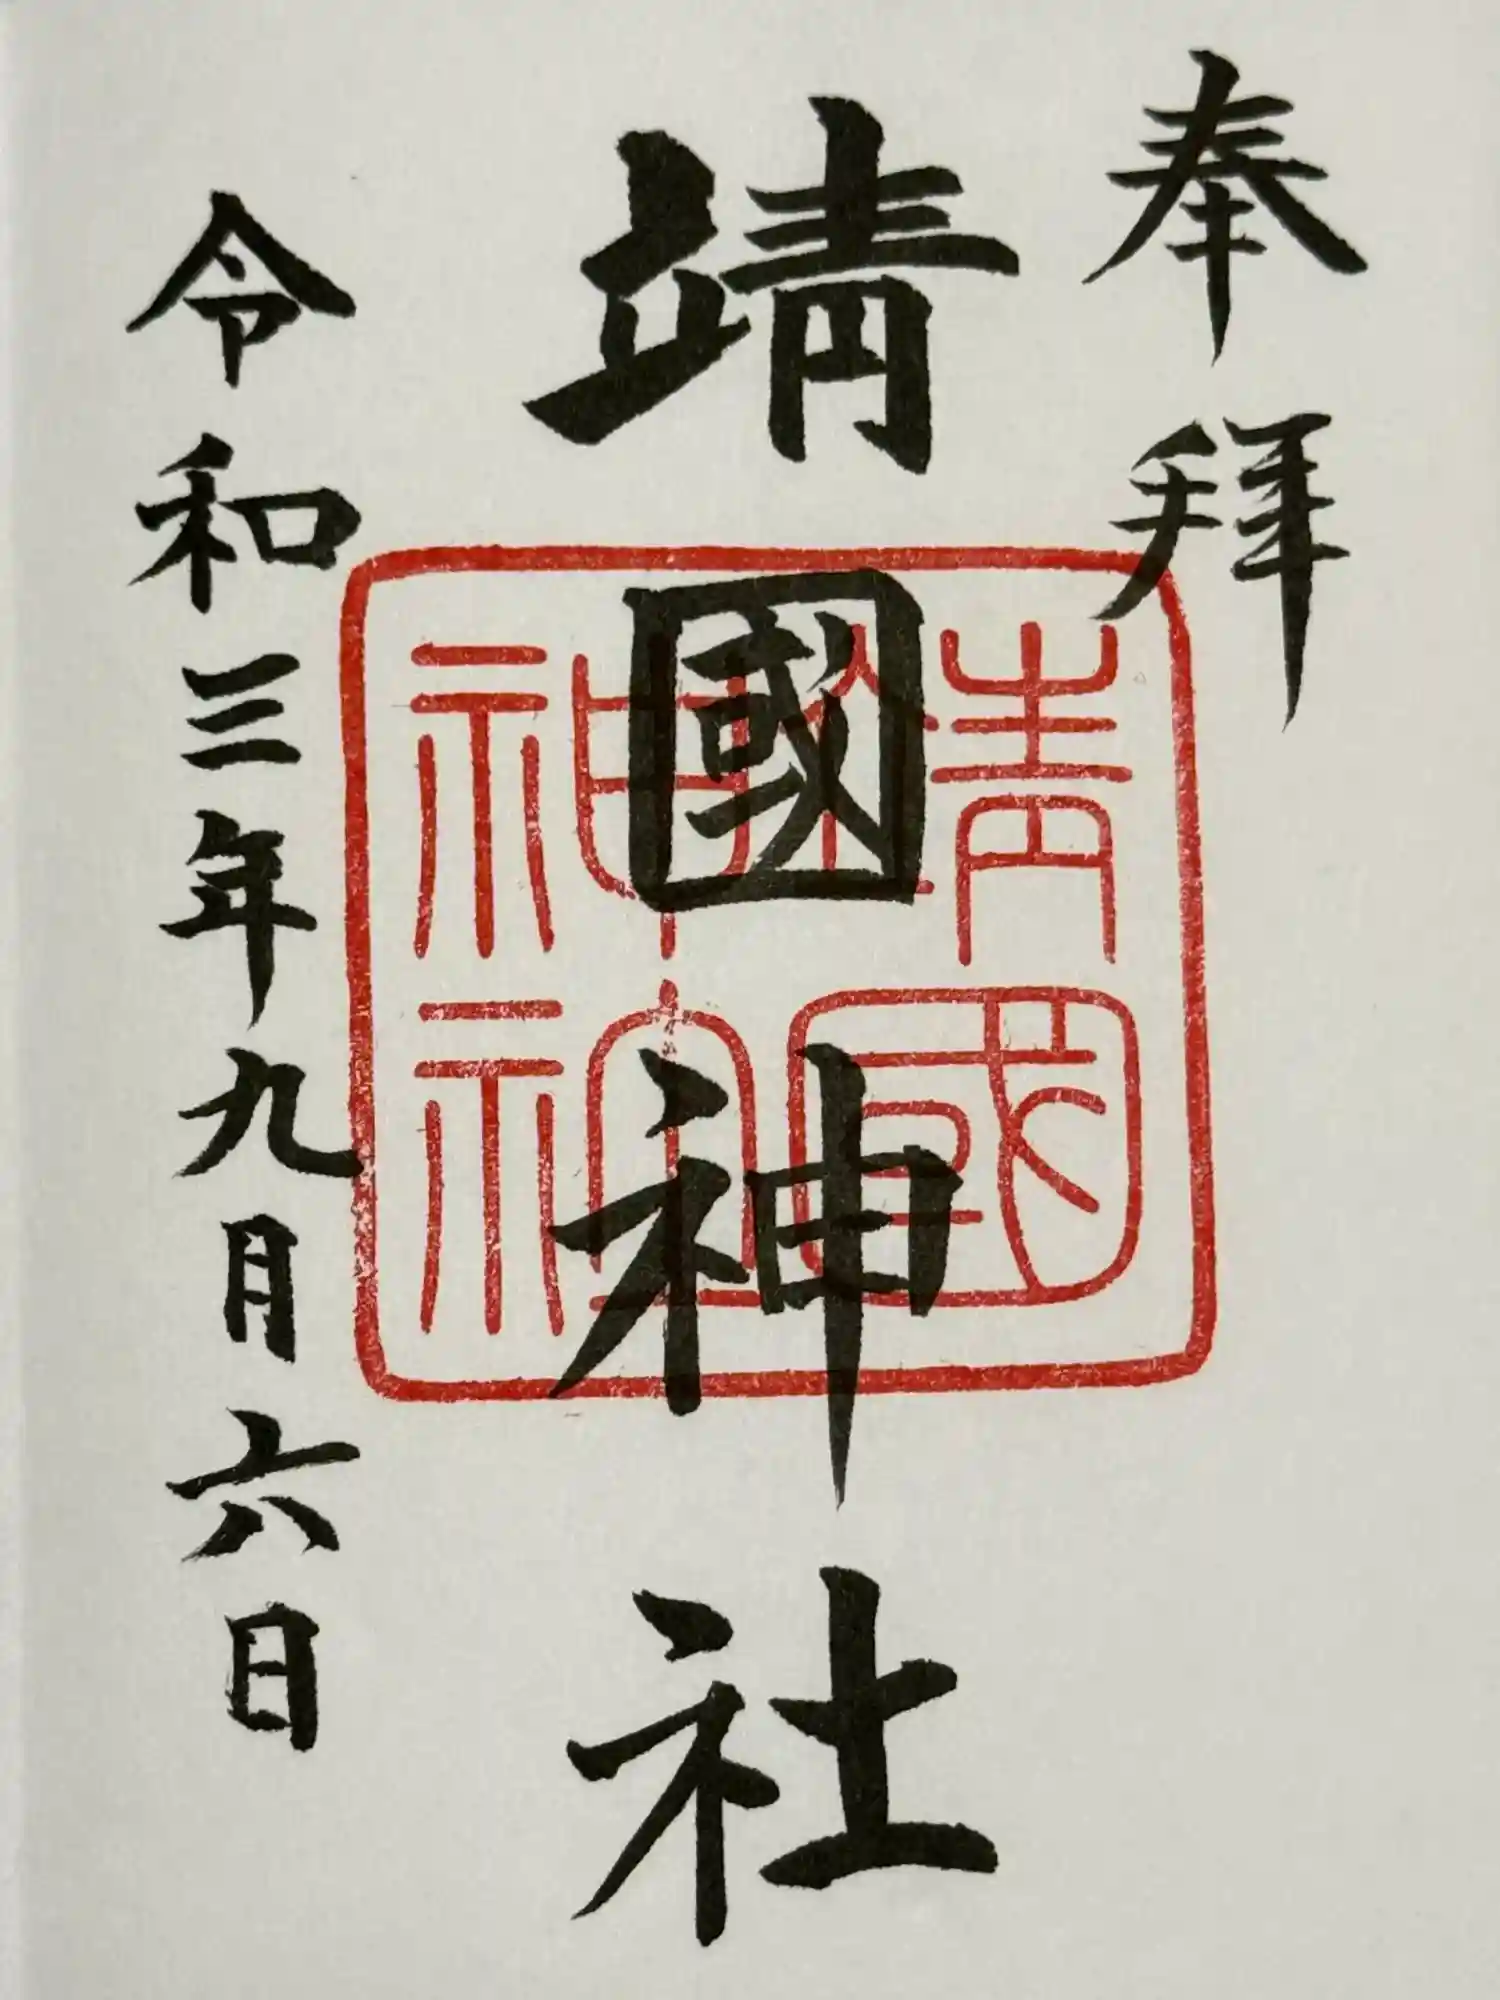 奉拜
靖國神社
靖國
神社
令和三年九月六日